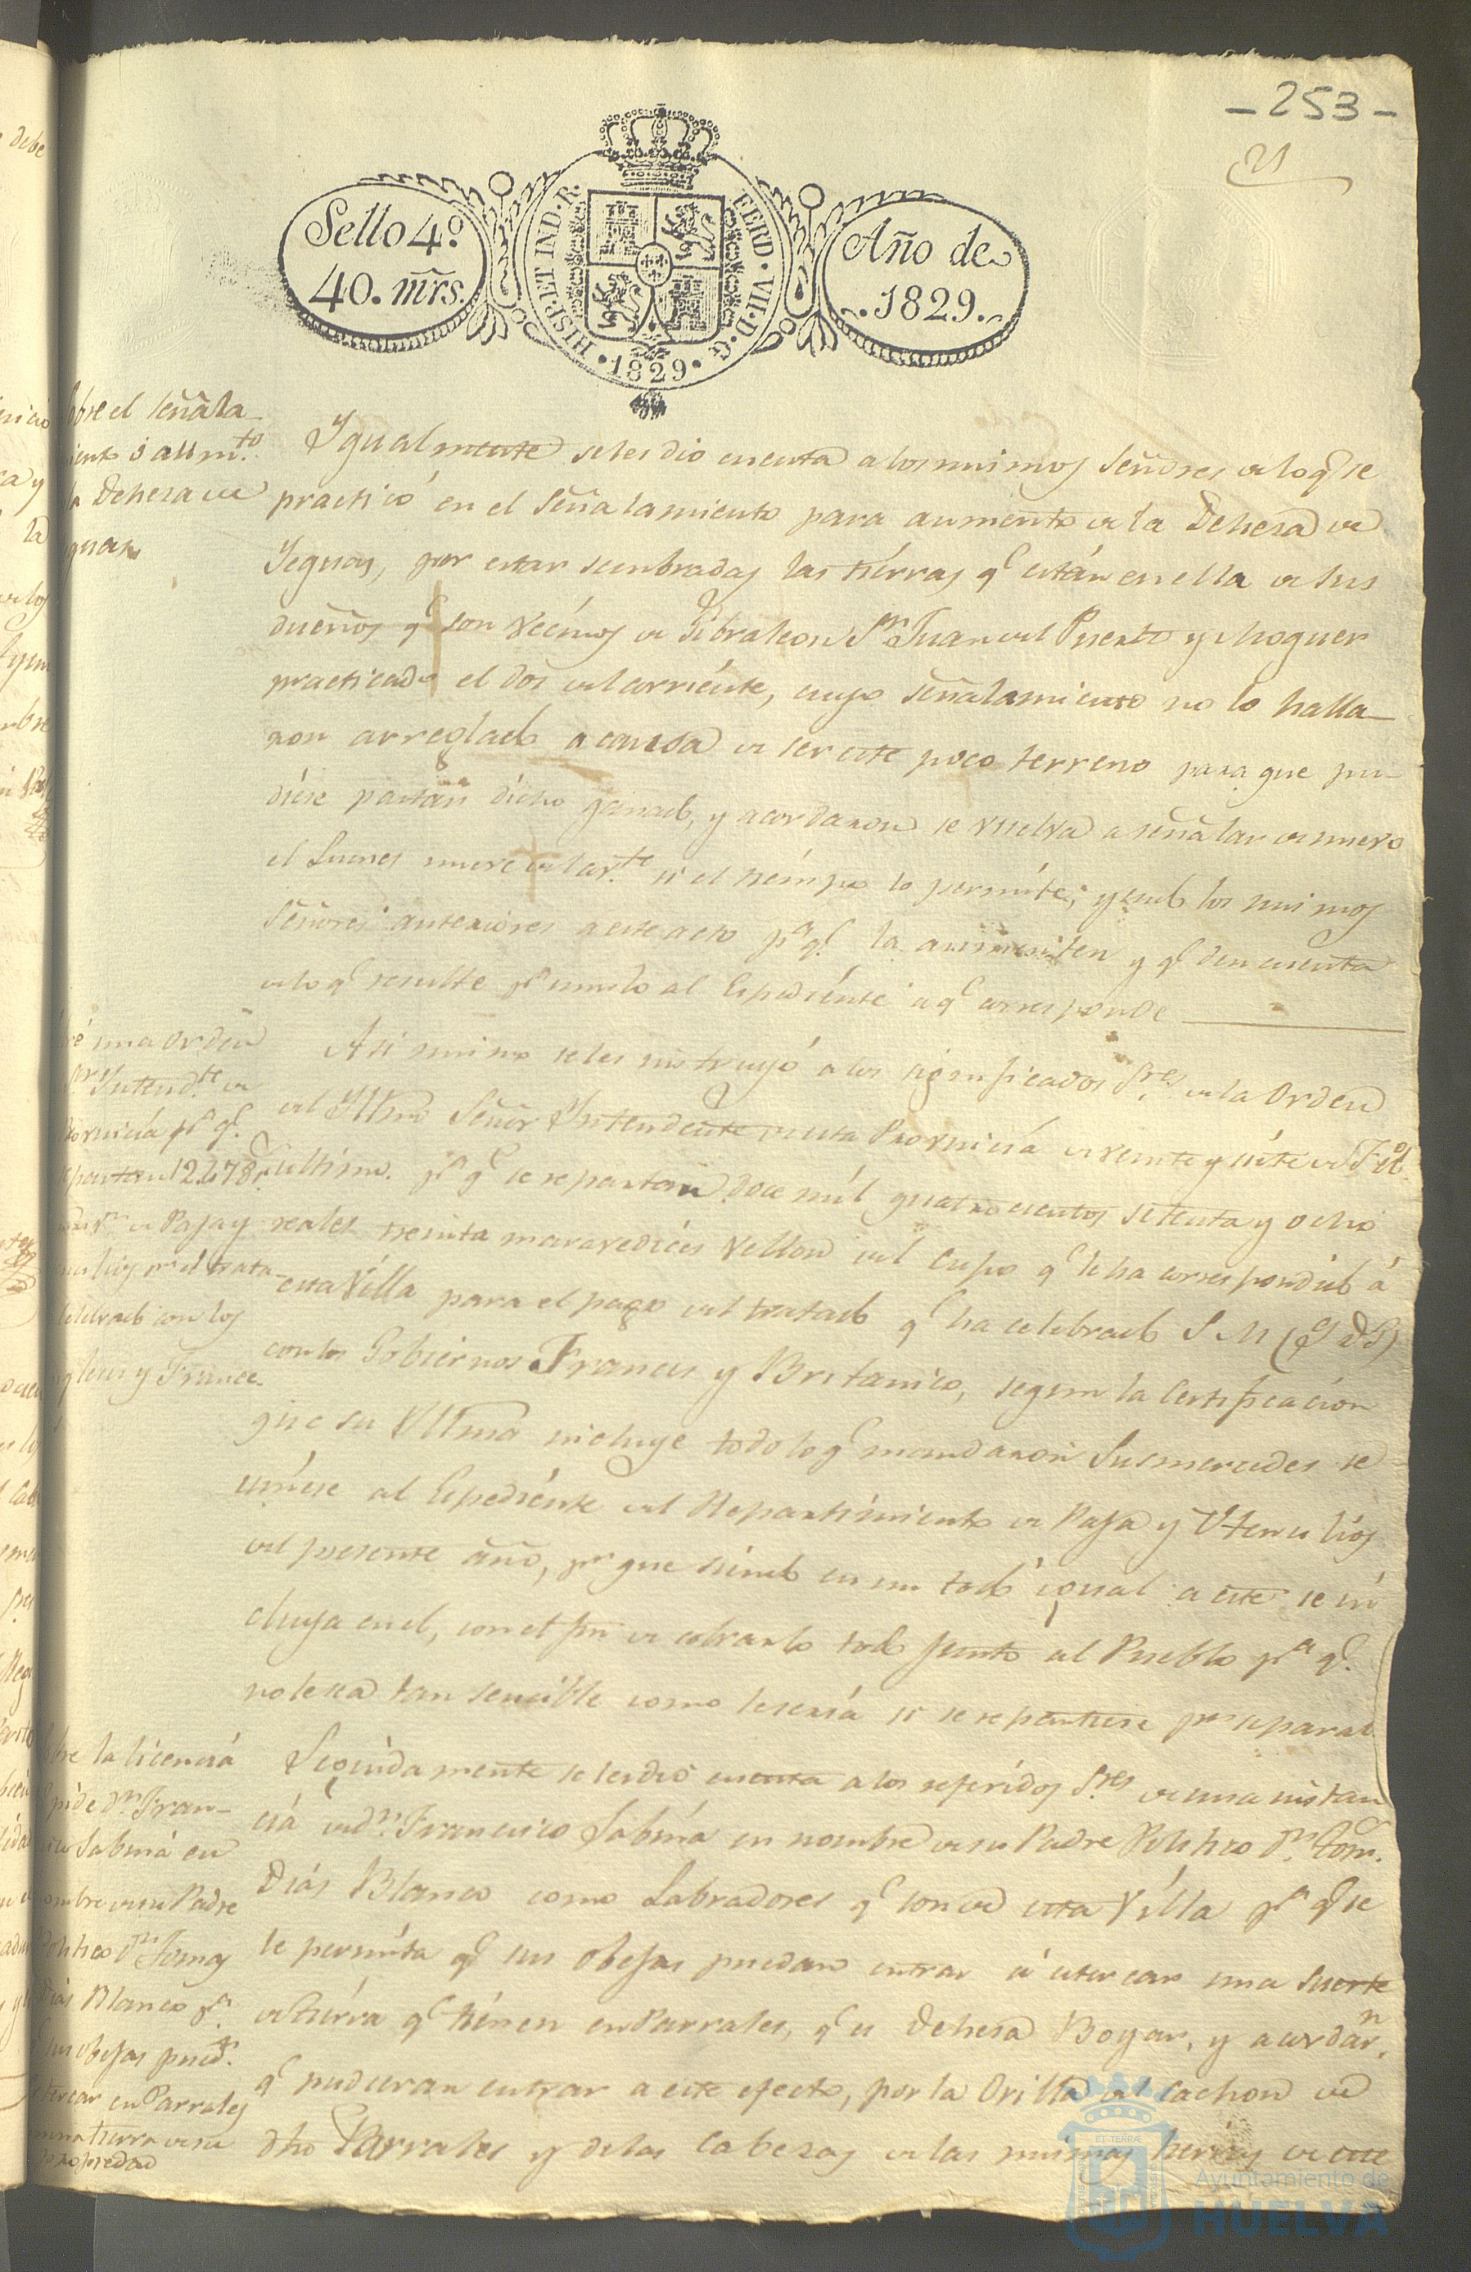 - 253 -
Sello 4º
40. mrs.
HISP. ET IND. R.
FERD. VII. D. G.
1829
Año de
1829.
obre el señala
iento o aum.to
la Dehesa de
guas
Ygualmente se les dio cuenta a los mismos Señores de lo q.e se
practicó en el Señalamiento para aumento de la Dehesa de
Yeguas, por estar sembradas las tierras q.e están en ella de sus
dueños q.e son vecinos de Gibraleon S.n Juan del Puerto y Moguer
practicado el dos del corriente, cuyo señalamiento no lo halla-
ron arreglado a causa de ser este poco terreno para que pu-
diese pastar dicho ganado, y acordaron se vuelva a señalar de nuevo
el Lunes nueve del cor.te si el tiempo lo permite; yendo los mismos
Señores anteriores a este acto p.a q.e la aumenten y q.e den cuenta
de lo q.e resulte p.a unirlo al Espediente a q.e corresponde
re una orden
Intend.te de
Provincia p.a q.e
repartan 12.478 r.s
de Paja y
el trata
celebrado con los
gleses y Frances.
Asi mismo se les instruyó a los significados S.res de la Orden
del Yltmo Señor Yntendente de esta Provincia de veinte y siete de Feb.o
ultimo. p.a q.e se repartan doce mil quatrocientos setenta y ocho
reales treinta maravedices vellon del cupo q.e le ha correspondido á
esta Villa para el pago del tratado q.e ha celebrado S. M. (Q D G)
con los Gobiernos Frances y Britanico, segun la Certificacion
que su Yltma incluye todo lo q.e mandaron Sus mercedes se
uniese al Espediente del Repartimiento de Paja y Utensilios
del presente año, p.a que siendo en un todo igual a este se in
cluya en el, con el fin de cobrarlo todo junto al Pueblo p.a q.e
no le sea tan sencible como le sería si se repartiese por separad
bre la licencia
pide d.n Fran-
co Sabina en
ombre de su Padre
Politico d.n Tomas
Dias Blanco p.a
sus obejas pued.n
tercar en Parrales
una tierra de su
propiedad
Seguidamente se les dió cuenta a los referidos S.res de una instan
cia de d.n Francisco Sabina en nombre de su Padre Politico d.n Tom.s
Dias Blanco como Labradores q.e son de esta Villa p.a q.e se
le permita q.e sus obejas puedan entrar á estercar una suerte
de tierra q.e tienen en Parrales, q.e es Dehesa Boyar, y acordar.n
q.e pudieran entrar a este efecto, por la Orilla del Cachon de
dho Parrales y de las Cabezas de las mismas de este
Ayuntamiento de
HUELVA